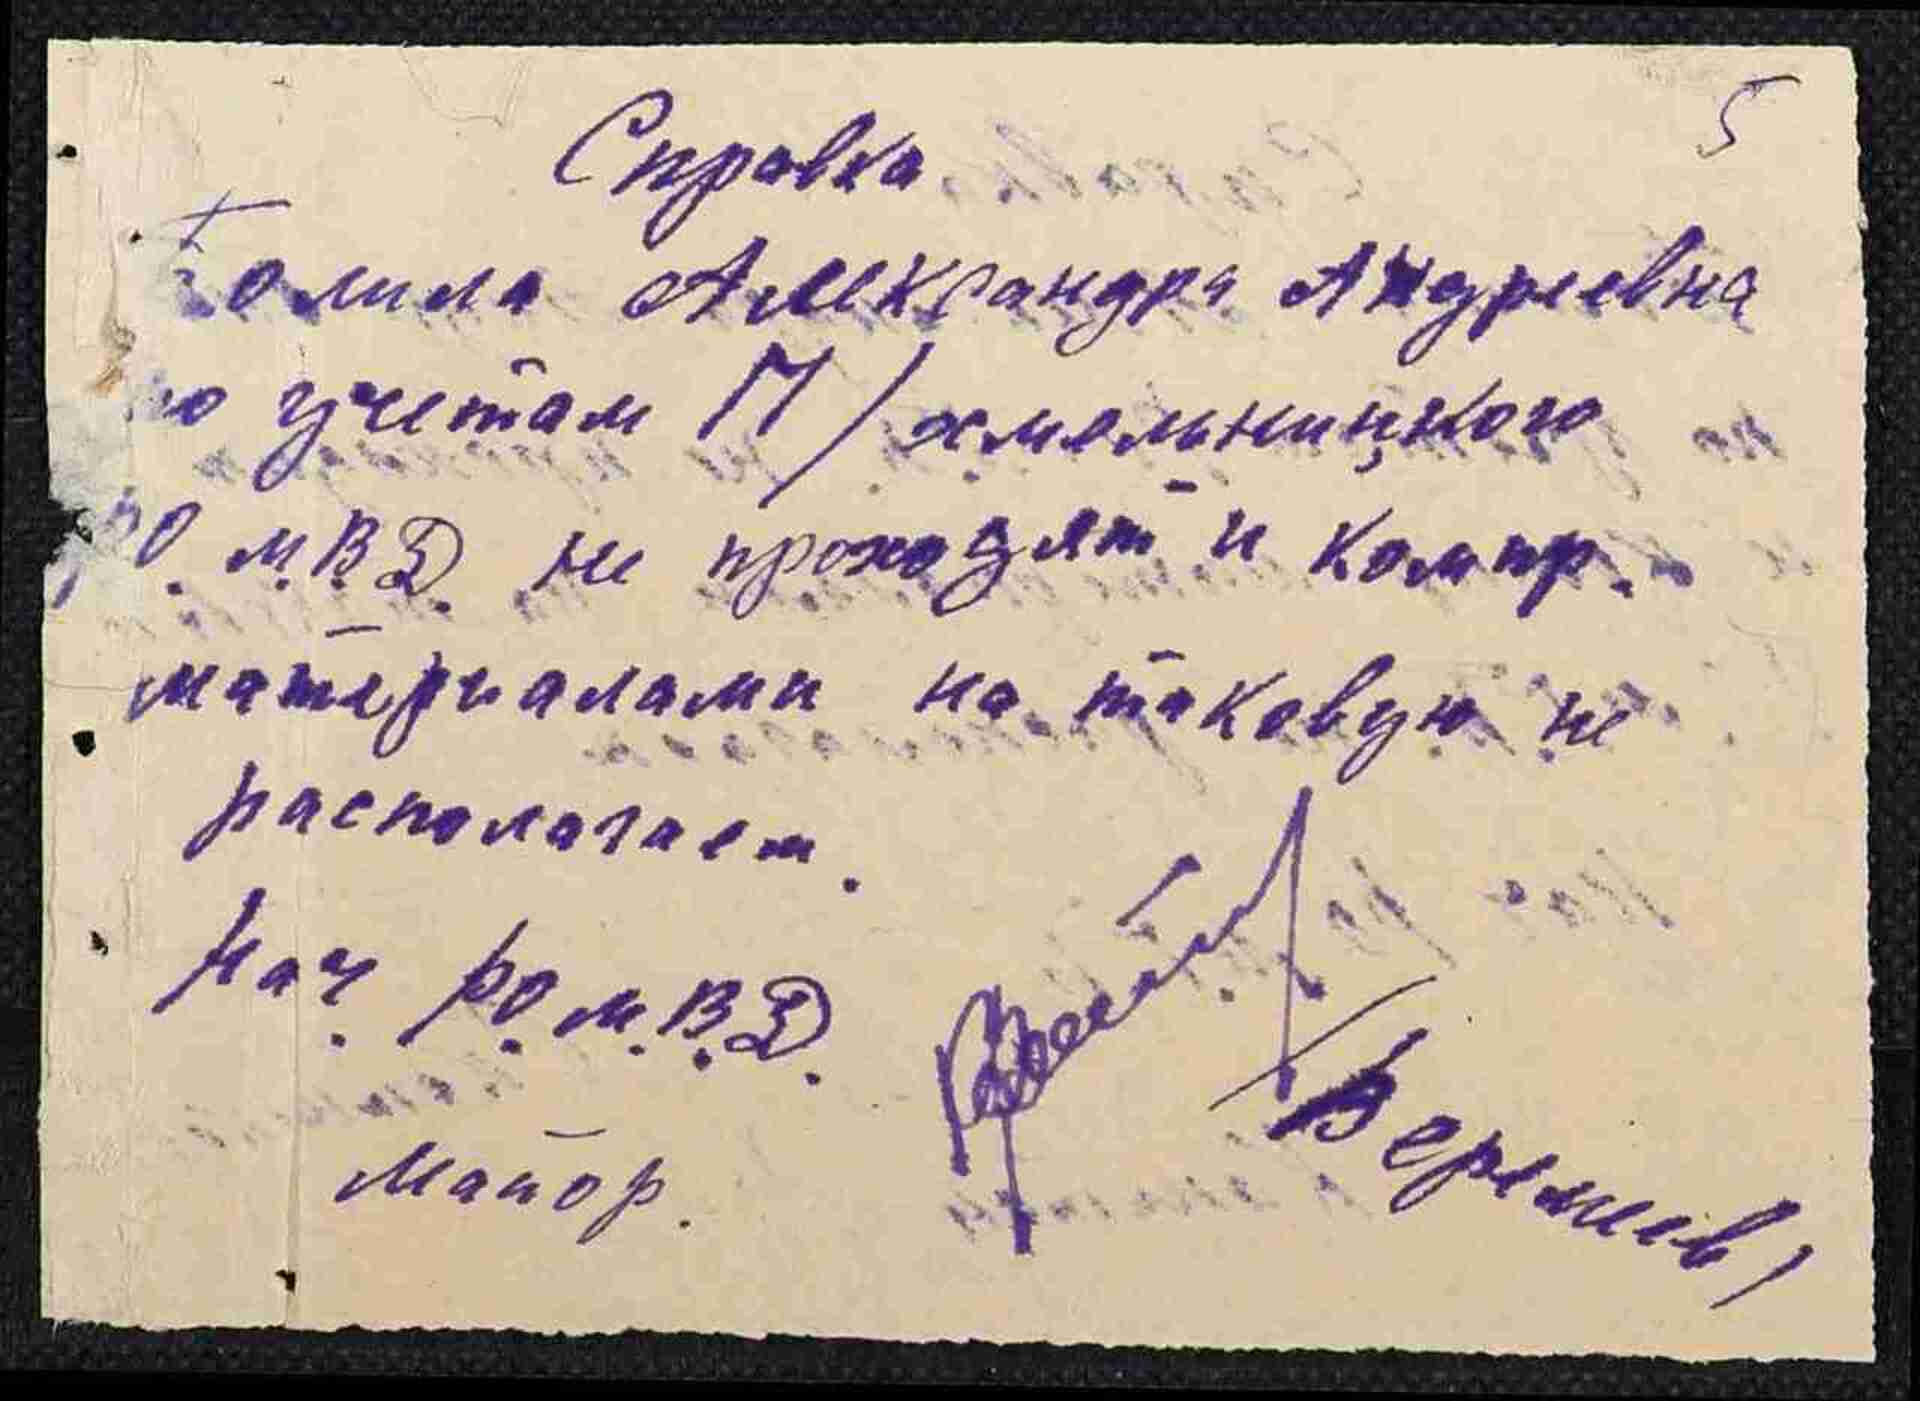 5
Справка
Томила Александра Андреевна
по учетам П/хмельницкого
РО. М.В.Д. не проходят и компр.
материалами на таковую не
располагаем.
Нач. РО. М.В.Д.
Майор.
/Веремеев/